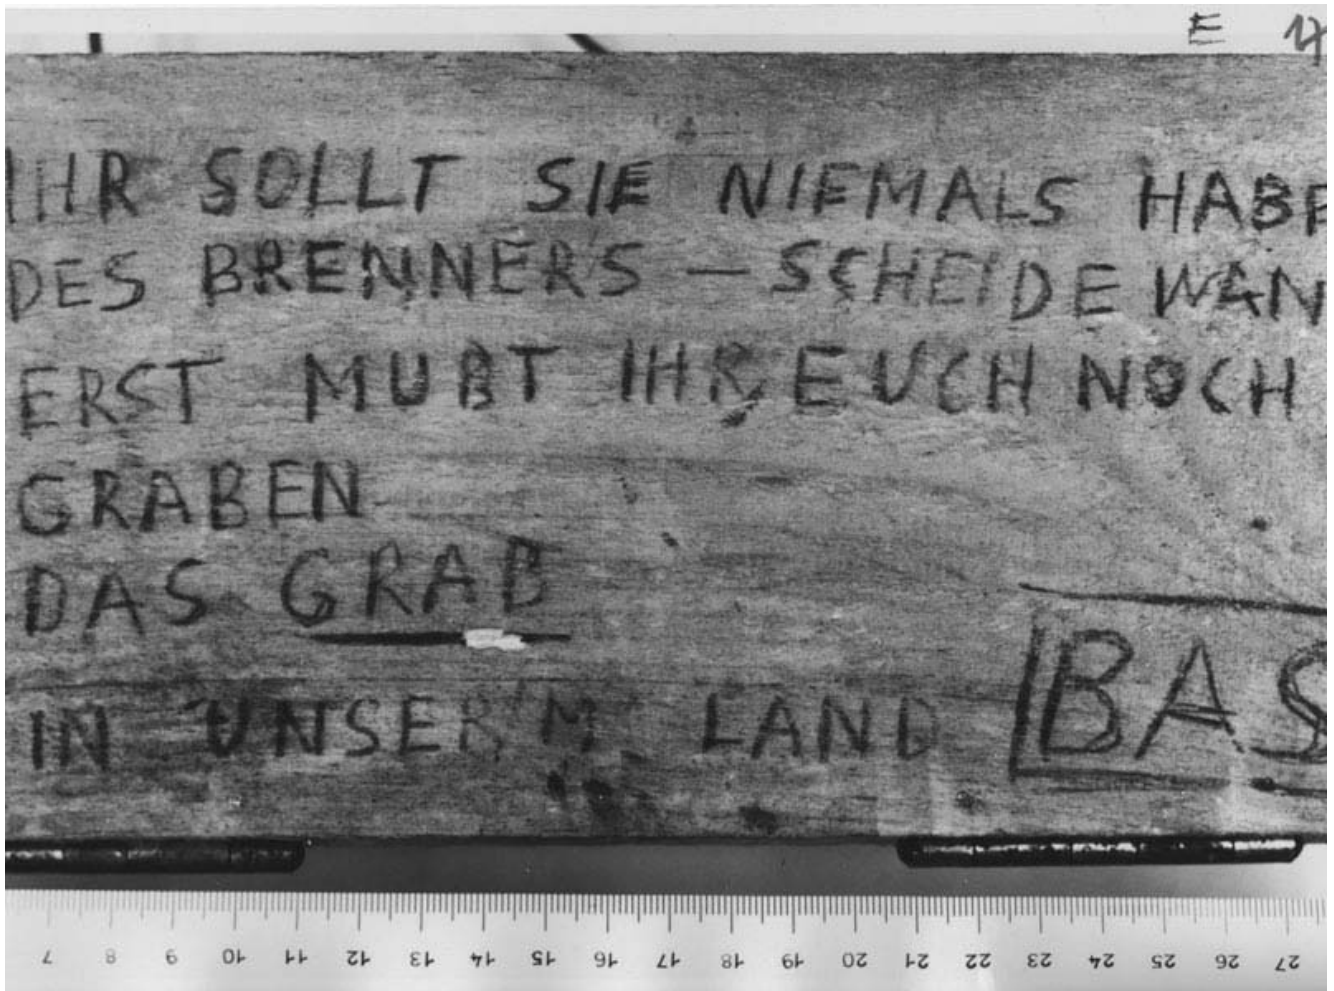 E 17
IHR SOLLT SIE NIEMALS HABE
DES BRENNERS — SCHEIDEWAN
ERST MUBT IHR EUCH NOCH
GRABEN
DAS GRAB
IN UNSER'M LAND BAS
7 8 9 10 11 12 13 14 15 16 17 18 19 20 21 22 23 24 25 26 27